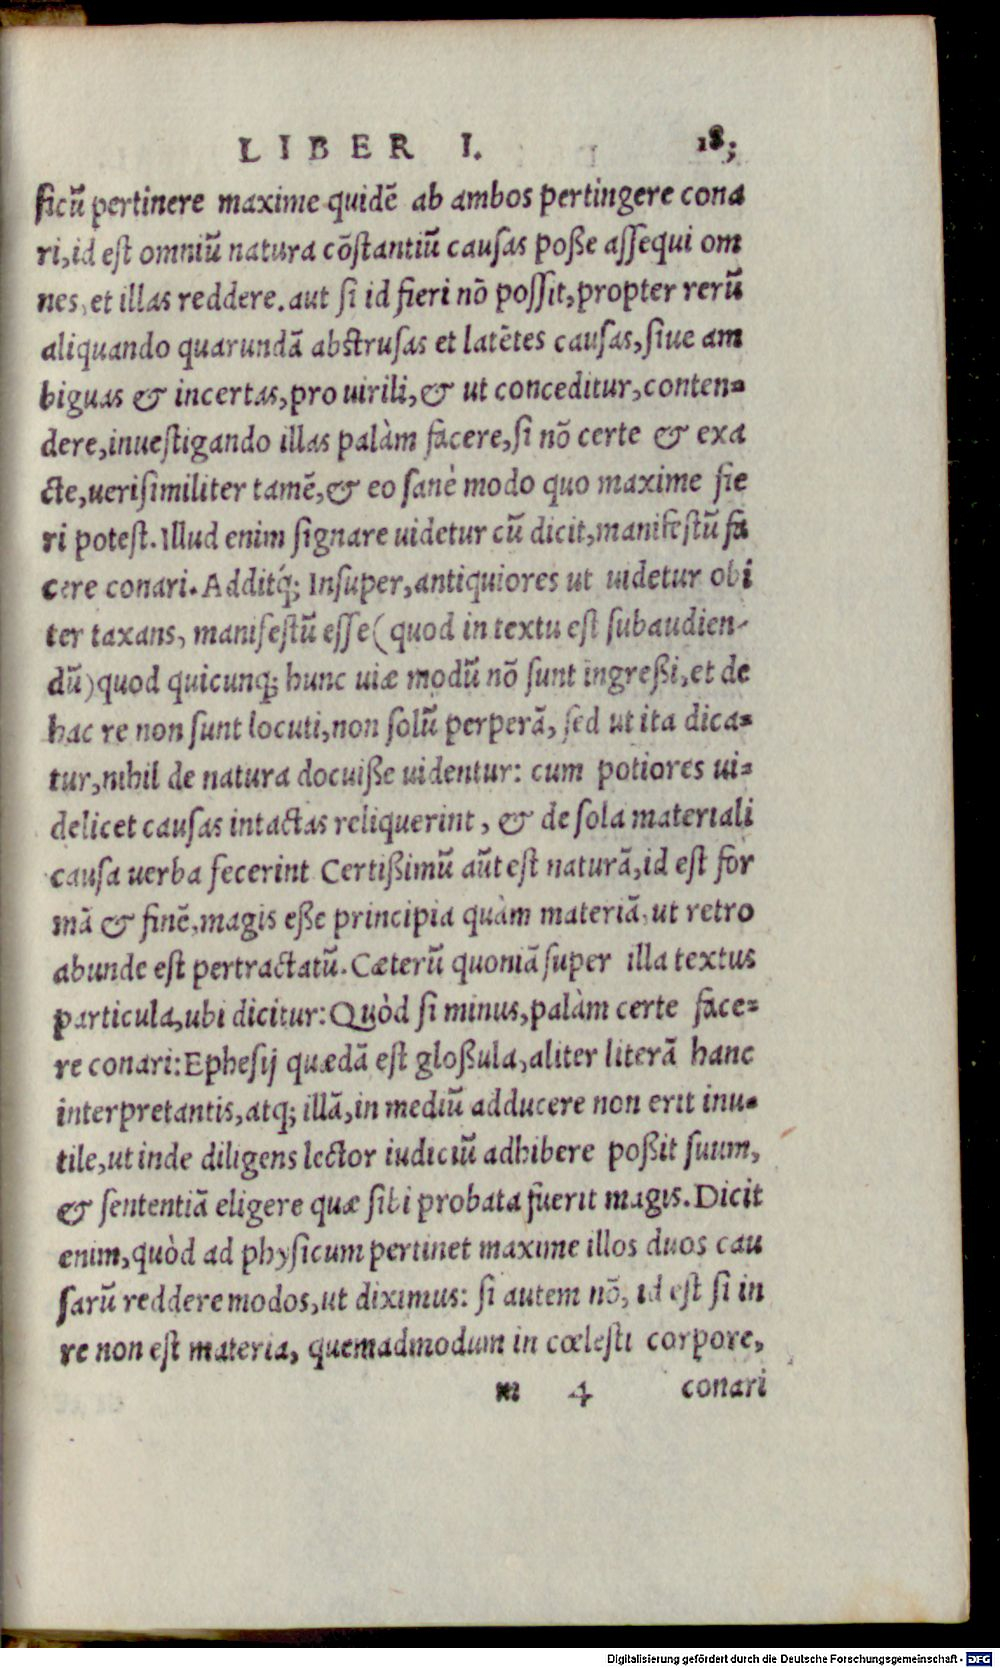 LIBER I. 183
ſicũ pertinere maxime quidẽ ab ambos pertingere cona
ri, id eſt omniũ natura cõſtantiũ cauſas poße aſſequi om
nes, et illas reddere. aut ſi id fieri nõ poſſit, propter rerũ
aliquando quarundã abſtruſas et latẽtes cauſas, ſiue am
biguas & incertas, pro uirili, & ut conceditur, conten=
dere, inueſtigando illas palàm facere, ſi nõ certe & exa
cte, ueriſimiliter tamẽ, & eo ſanè modo quo maxime fie
ri poteſt. Illud enim ſignare uidetur cũ dicit, manifeſtũ fa
cere conari. Additq́; Inſuper, antiquiores ut uidetur obi
ter taxans, manifeſtũ eſſe (quod in textu eſt ſubaudien-
dũ) quod quicunq; hunc uiæ modũ nõ ſunt ingreßi, et de
hac re non ſunt locuti, non ſolũ perperã, ſed ut ita dica=
tur, nihil de natura docuiße uidentur: cum potiores ui=
delicet cauſas intactas reliquerint, & de ſola materiali
cauſa uerba fecerint Certißimũ aũt eſt naturã, id eſt for
mã & finẽ, magis eße principia quàm materiã, ut retro
abunde eſt pertractatũ. Cæterũ quoniã ſuper illa textus
particula, ubi dicitur: Quòd ſi minus, palàm certe face=
re conari: Epheſij quædã eſt gloßula, aliter literã hanc
interpretantis, atq; illã, in mediũ adducere non erit inu=
tile, ut inde diligens lector iudiciũ adhibere poßit ſuum,
& ſententiã eligere quæ ſibi probata fuerit magis. Dicit
enim, quòd ad phyſicum pertinet maxime illos duos cau
ſarũ reddere modos, ut diximus: ſi autem nõ, id eſt ſi in
re non eſt materia, quemadmodum in cœleſti corpore,
m 4 conari
Digitalisierung gefördert durch die Deutsche Forschungsgemeinschaft - DFG